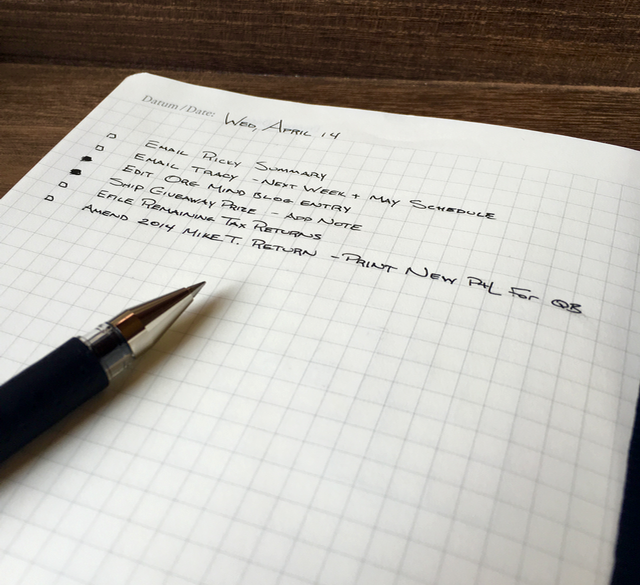 Datum / Date: Wed, April 14
Email Ricky Summary
Email Tracy - Next Week + May Schedule
Edit Org Mind Blog Entry
Ship Giveaway Prize - Add Note
Efile Remaining Tax Returns
Amend 2014 Mike T. Return - Print New P+L For QB